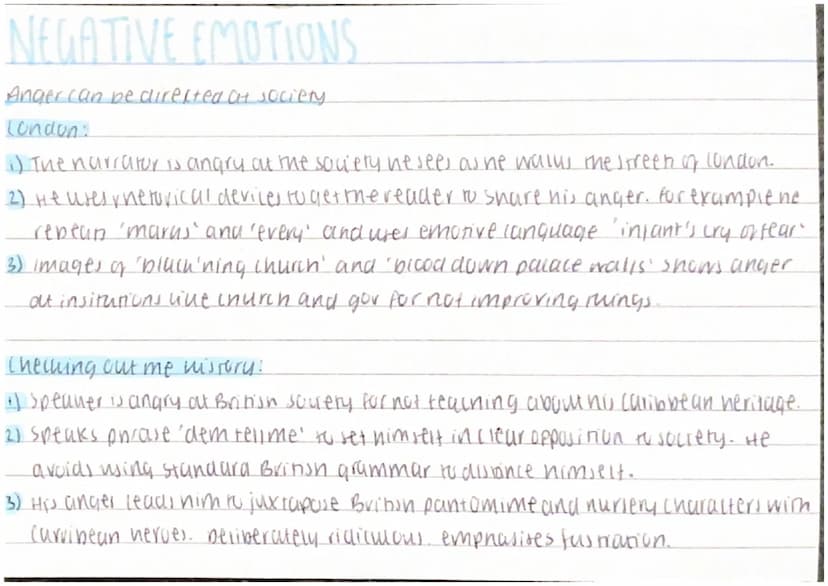 NEGATIVE EMOTIONS
Anger can be directed at society
London:
1) The narrator is angry at the society he sees as he walks the street of london.
2) He uses rhetorical devices to get the reader to share his anger. For example he
repeats 'marks' and 'every' and uses emotive language 'infant's cry of fear'
3) images of 'black'ning church' and 'blood down palace walls' shows anger
at insitutions like church and gov for not improving things.
Checking out me history:
1) Speaker is angry at British society for not teaching about his Caribbean heritage.
2) Speaks phrase 'dem tell me' to set himself in clear opposition to society. He
avoids using standard British grammar to distance himself.
3) His anger leads him to juxtapose British pantomime and nursery characters with
Carribean heroes. Deliberately ridiculous. emphasises fustration.